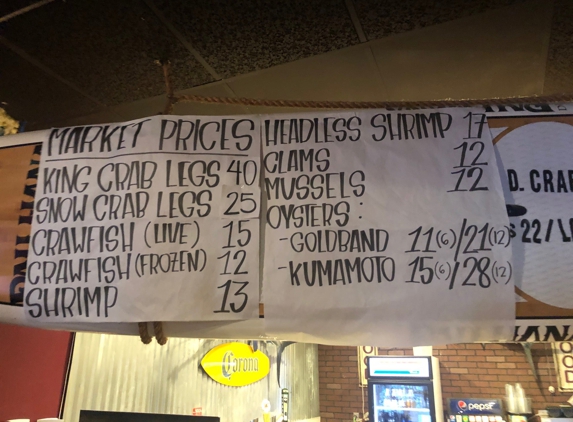 MARKET PRICES
KING CRAB LEGS 40
SNOW CRAB LEGS 25
CRAWFISH (LIVE) 15
CRAWFISH (FROZEN) 12
SHRIMP 13
HEADLESS SHRIMP 17
CLAMS 12
MUSSELS 12
OYSTERS:
-GOLDBAND 11(6)/21(12)
-KUMAMOTO 15(6)/28(12)
Corona
pepsi